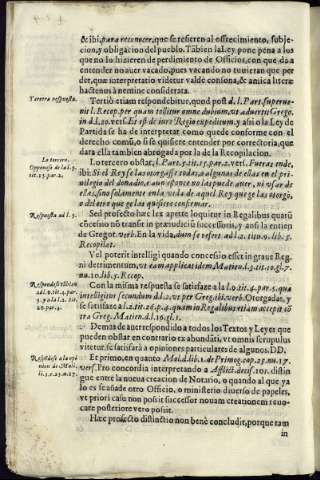 & ibi, para reconocer, que se refieren al ofrecimiento, subje-
cion, y obligacion del pueblo. Tãbien la Ley pone pena a los
que no lo hizieren de perdimiento de Officios, con que da a
entender no auer vacado, pues vacando no tuuieran que per-
der, quæ interpretatio videtur valdè consona, & antica literæ
hactenus à nemine considerata.
Tercera respuesta.
Tertiò etiam respondebitur, quod post d. l. Part. superue-
nit l. Recop. per quam tollitur omne dubium, vt aduertit Grego.
in d. l. 30. vers. Et est de iure Regio expedit. y assi la Ley de
Partida se ha de interpretar como quede conforme con el
derecho comũ, ò si se quisiere entender por correctoria, que
dara ella tambien abrogada por la de la Recopilacion.
Lo tercero.
Oppensse de la l. 5.
tit. 15. par. 2.
Lo tercero obstat, l. Part. 5. tit. 15. par. 2. vers. Fueras ende,
ibi: Si el Rey se las otorgasse todas, o algunas de ellas en el pri-
uilegio del donadio, e aun despues no las puede auer, ni vsar de
ellas, sino solamente en la vida de aquel Rey que ge las otorgò,
o del otro que ge las quisiere confirmar.
Respuesta ad l. 5.
Sed profectò hæc lex aperte loquitur in Regalibus quarũ
cõcessio nõ transit in præiudiciũ successoris, y assi la entien
de Gregor. verb. En la vida, dum se refert ad l. 2. tit. 9. lib. 5.
Recopilat.
Vel poterit intelligi quando concessio esset in graue Reg-
ni detrimentum, vt eam applicat idem Matien. d. l. 2. tit. 10. gl. 7.
nu. 10. lib. 5. Recop.
Con la misma respuesta se satisfaze a la l. 9. tit. 4. par. 5. quæ
intelligitur secundum d. l. 2. vt per Greg. ibi verb. Otorgadas, y
se satisfaze al. 2. tit. 26. p. 4. quam in Regalibus etiam accepit cõ
tra Greg. Matien. d. l. 10. gl. 1.
Demas de auer respondido a todos los Textos y Leyes que
pueden obstar en contrario ex abundãti, vt omni scrupulus
vitetur. se satisfarà a opiniones particulares de algunos. DD.
Et primo, en quanto Mol. d. lib. 1. de Primog. cap. 25. nu. 17.
vers. Pro concordia interpretando a Afflict. decis. 101. distin
gue entre la nueua creacion de Notario, o quando al que ya
lo es se añade otro Officio, o ministerio diuerso de papeles,
vt priori casu non possit successor nouam creationem reuo-
care posteriore vero possit.
Hæc profecto distinctio non benè concludit, porque tam
in